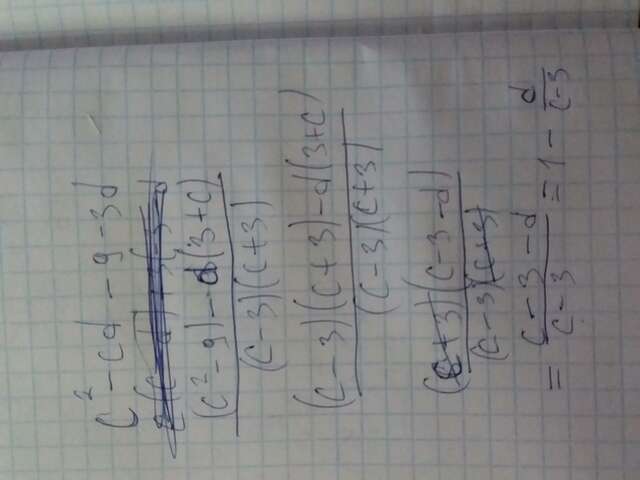 c² - cd - 9 - 3d
(c² - 9) - d(3+c)
(c-3)(c+3)
(c-3)(c+3) - d(3+c)
(c-3)(c+3)
(c+3)(c-3-d)
(c-3)(c+3)
= c-3-d / c-3 = 1 - d / c-3